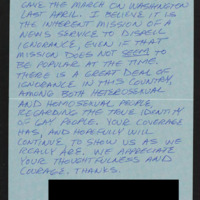 GAVE THE MARCH ON WASHINGTON
LAST APRIL. I BELIEVE IT IS
THE INHERENT MISSION OF A
NEWS SERVICE TO DISPELL
IGNORANCE, EVEN IF THAT
MISSION DOES NOT SEEM TO
BE POPULAR AT THE TIME.
THERE IS A GREAT DEAL OF
IGNORANCE IN THIS COUNTRY,
AMONG BOTH HETEROSEXUAL
AND HOMOSEXUAL PEOPLE,
REGARDING THE TRUE IDENTITY
OF GAY PEOPLE. YOUR COVERAGE
HAS, AND HOPEFULLY WILL
CONTINUE TO SHOW US AS WE
REALLY ARE. WE APPRECIATE
YOUR THOUGHTFULNESS AND
COURAGE. THANKS.